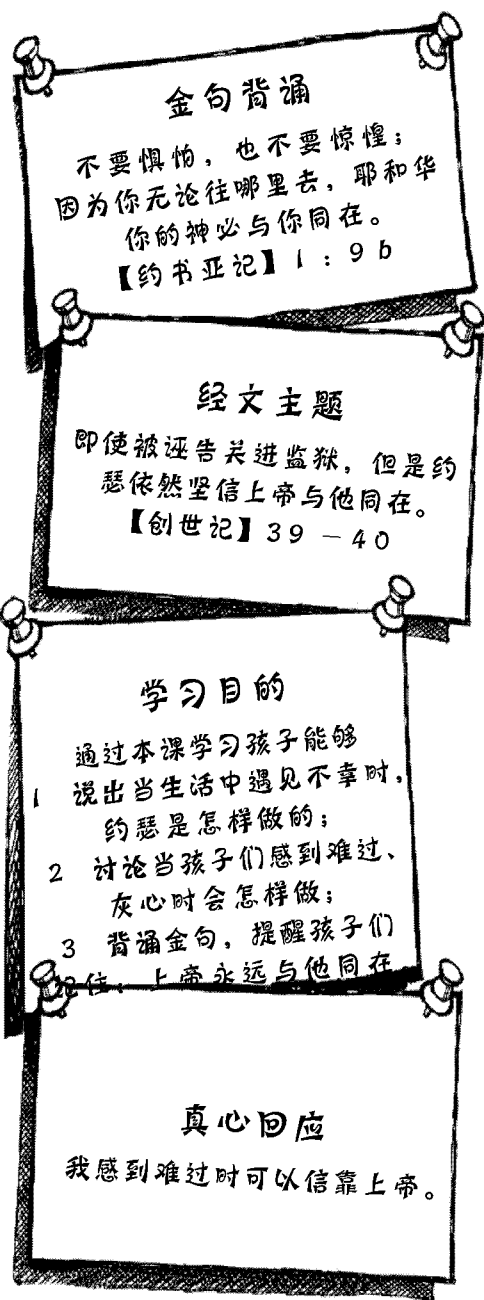 金句背诵
不要惧怕，也不要惊惶；
因为你无论往哪里去，耶和华
你的神必与你同在。
【约书亚记】1：9b
经文主题
即使被诬告关进监狱，但是约
瑟依然坚信上帝与他同在。
【创世记】39－40
学习目的
通过本课学习孩子能够
1 说出当生活中遇见不幸时，
约瑟是怎样做的；
2 讨论当孩子们感到难过、
灰心时会怎样做；
3 背诵金句，提醒孩子们
记住：上帝永远与他同在
真心回应
我感到难过时可以信靠上帝。